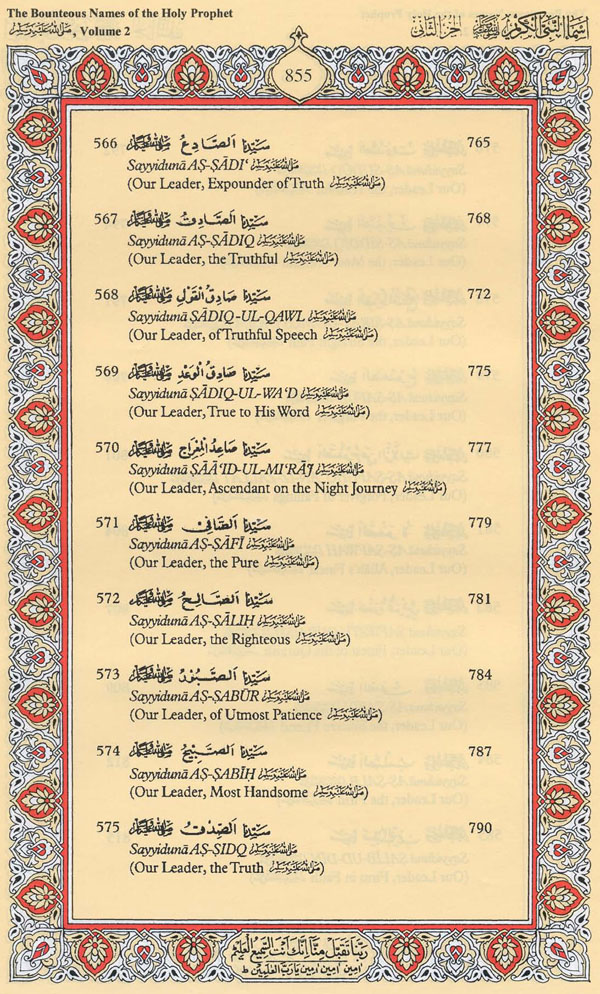 The Bounteous Names of the Holy Prophet
ﷺ, Volume 2
اسماء النبی الکریم ﷺ الجزء الثانی
855
566 سَيِّدُنَا اَلصَّادِعُ ﷺ 765
Sayyidunā AṢ-ṢĀDIʻ ﷺ
(Our Leader, Expounder of Truth ﷺ)
567 سَيِّدُنَا اَلصَّادِقُ ﷺ 768
Sayyidunā AṢ-ṢĀDIQ ﷺ
(Our Leader, the Truthful ﷺ)
568 سَيِّدُنَا صَادِقُ الْقَوْلِ ﷺ 772
Sayyidunā ṢĀDIQ-UL-QAWL ﷺ
(Our Leader, of Truthful Speech ﷺ)
569 سَيِّدُنَا صَادِقُ الْوَعْدِ ﷺ 775
Sayyidunā ṢĀDIQ-UL-WAʻD ﷺ
(Our Leader, True to His Word ﷺ)
570 سَيِّدُنَا صَاعِدُ الْمِعْرَاجِ ﷺ 777
Sayyidunā ṢĀĀʻID-UL-MIʻRĀJ ﷺ
(Our Leader, Ascendant on the Night Journey ﷺ)
571 سَيِّدُنَا اَلصَّافِیْ ﷺ 779
Sayyidunā AṢ-ṢĀFĪ ﷺ
(Our Leader, the Pure ﷺ)
572 سَيِّدُنَا اَلصَّالِحُ ﷺ 781
Sayyidunā AṢ-ṢĀLIḤ ﷺ
(Our Leader, the Righteous ﷺ)
573 سَيِّدُنَا اَلصَّبُوْرُ ﷺ 784
Sayyidunā AṢ-ṢABŪR ﷺ
(Our Leader, of Utmost Patience ﷺ)
574 سَيِّدُنَا اَلصَّبِيْحُ ﷺ 787
Sayyidunā AṢ-ṢABĪḤ ﷺ
(Our Leader, Most Handsome ﷺ)
575 سَيِّدُنَا اَلصِّدْقُ ﷺ 790
Sayyidunā AṢ-ṢIDQ ﷺ
(Our Leader, the Truth ﷺ)
رَبَّنَا تَقَبَّلْ مِنَّا اِنَّكَ اَنْتَ السَّمِيْعُ الْعَلِيْمُ
اٰمِيْن اٰمِيْن اٰمِيْن يَارَبَّ الْعٰلَمِيْن ط